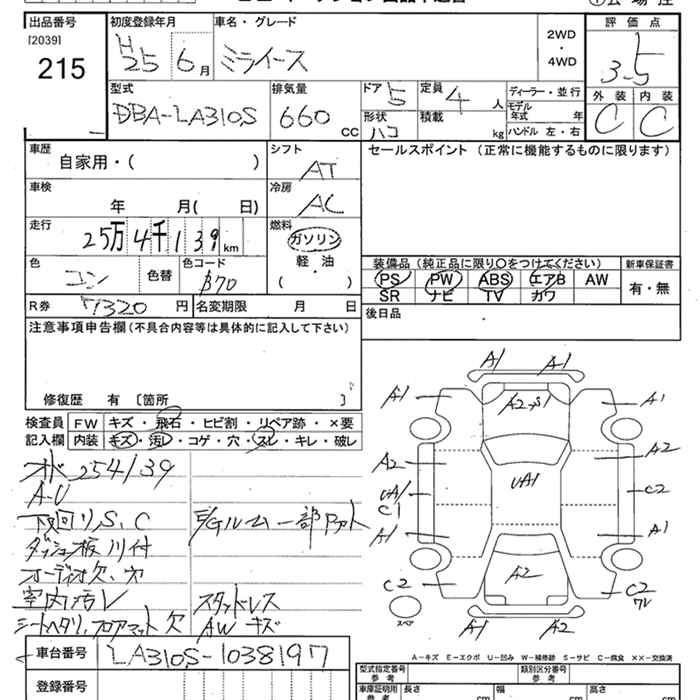 出品番号
[2039]
215
初度登録年月
H
25 6月
車名・グレード
ミライース
2WD
・
4WD
評価点
3.5
型式
DBA-LA310S
排気量
660 CC
ドア 5
定員 4 人
形状 ハコ
積載 kg
ディーラー・並行
モデル年式 年
ハンドル 左・右
外装 内装
C C
車歴
自家用・( )
車検
年 月( 日)
走行
25万4千139 km
色
コン
色替
色コード
B70
R券 7320 円
名変期限 月 日
シフト
AT
冷房
AC
燃料
ガソリン
軽・油
( )
セールスポイント (正常に機能するものに限ります)
装備品 (純正品に限り○をつけてください)
PS PW ABS エアB AW
SR ナビ TV カワ
新車保証書
有・無
後日品
注意事項申告欄(不具合内容等は具体的に記入して下さい)
修復歴 有 [箇所 ]
検査員
記入欄
FW キズ・飛石・ヒビ割・リペア跡・×要
内装 キズ・汚レ・コゲ・穴・スレ・キレ・破レ
オド 254139
A-U
下回リS、C
E/Gルーム一部
ダッシュ板 川付
オーディオ欠、穴
室内汚レ
スタッドレス
シートヘタリ、フロアマット欠
AWキズ
A1 A1
A1 A2→S1 A1
A2 A2
UA1 UA1 C2
C1
A1 A1
C2 A2 C2
ワレ
スペア
A1 A2
車台番号 LA310S-1038197
登録番号
A-キズ E-エクボ U-凹み W-補修跡 S-サビ C-腐食 ××-交換済
型式指定番号
参考
類別区分番号
参考
車庫証明用
参考
長さ cm
幅 cm
高さ cm